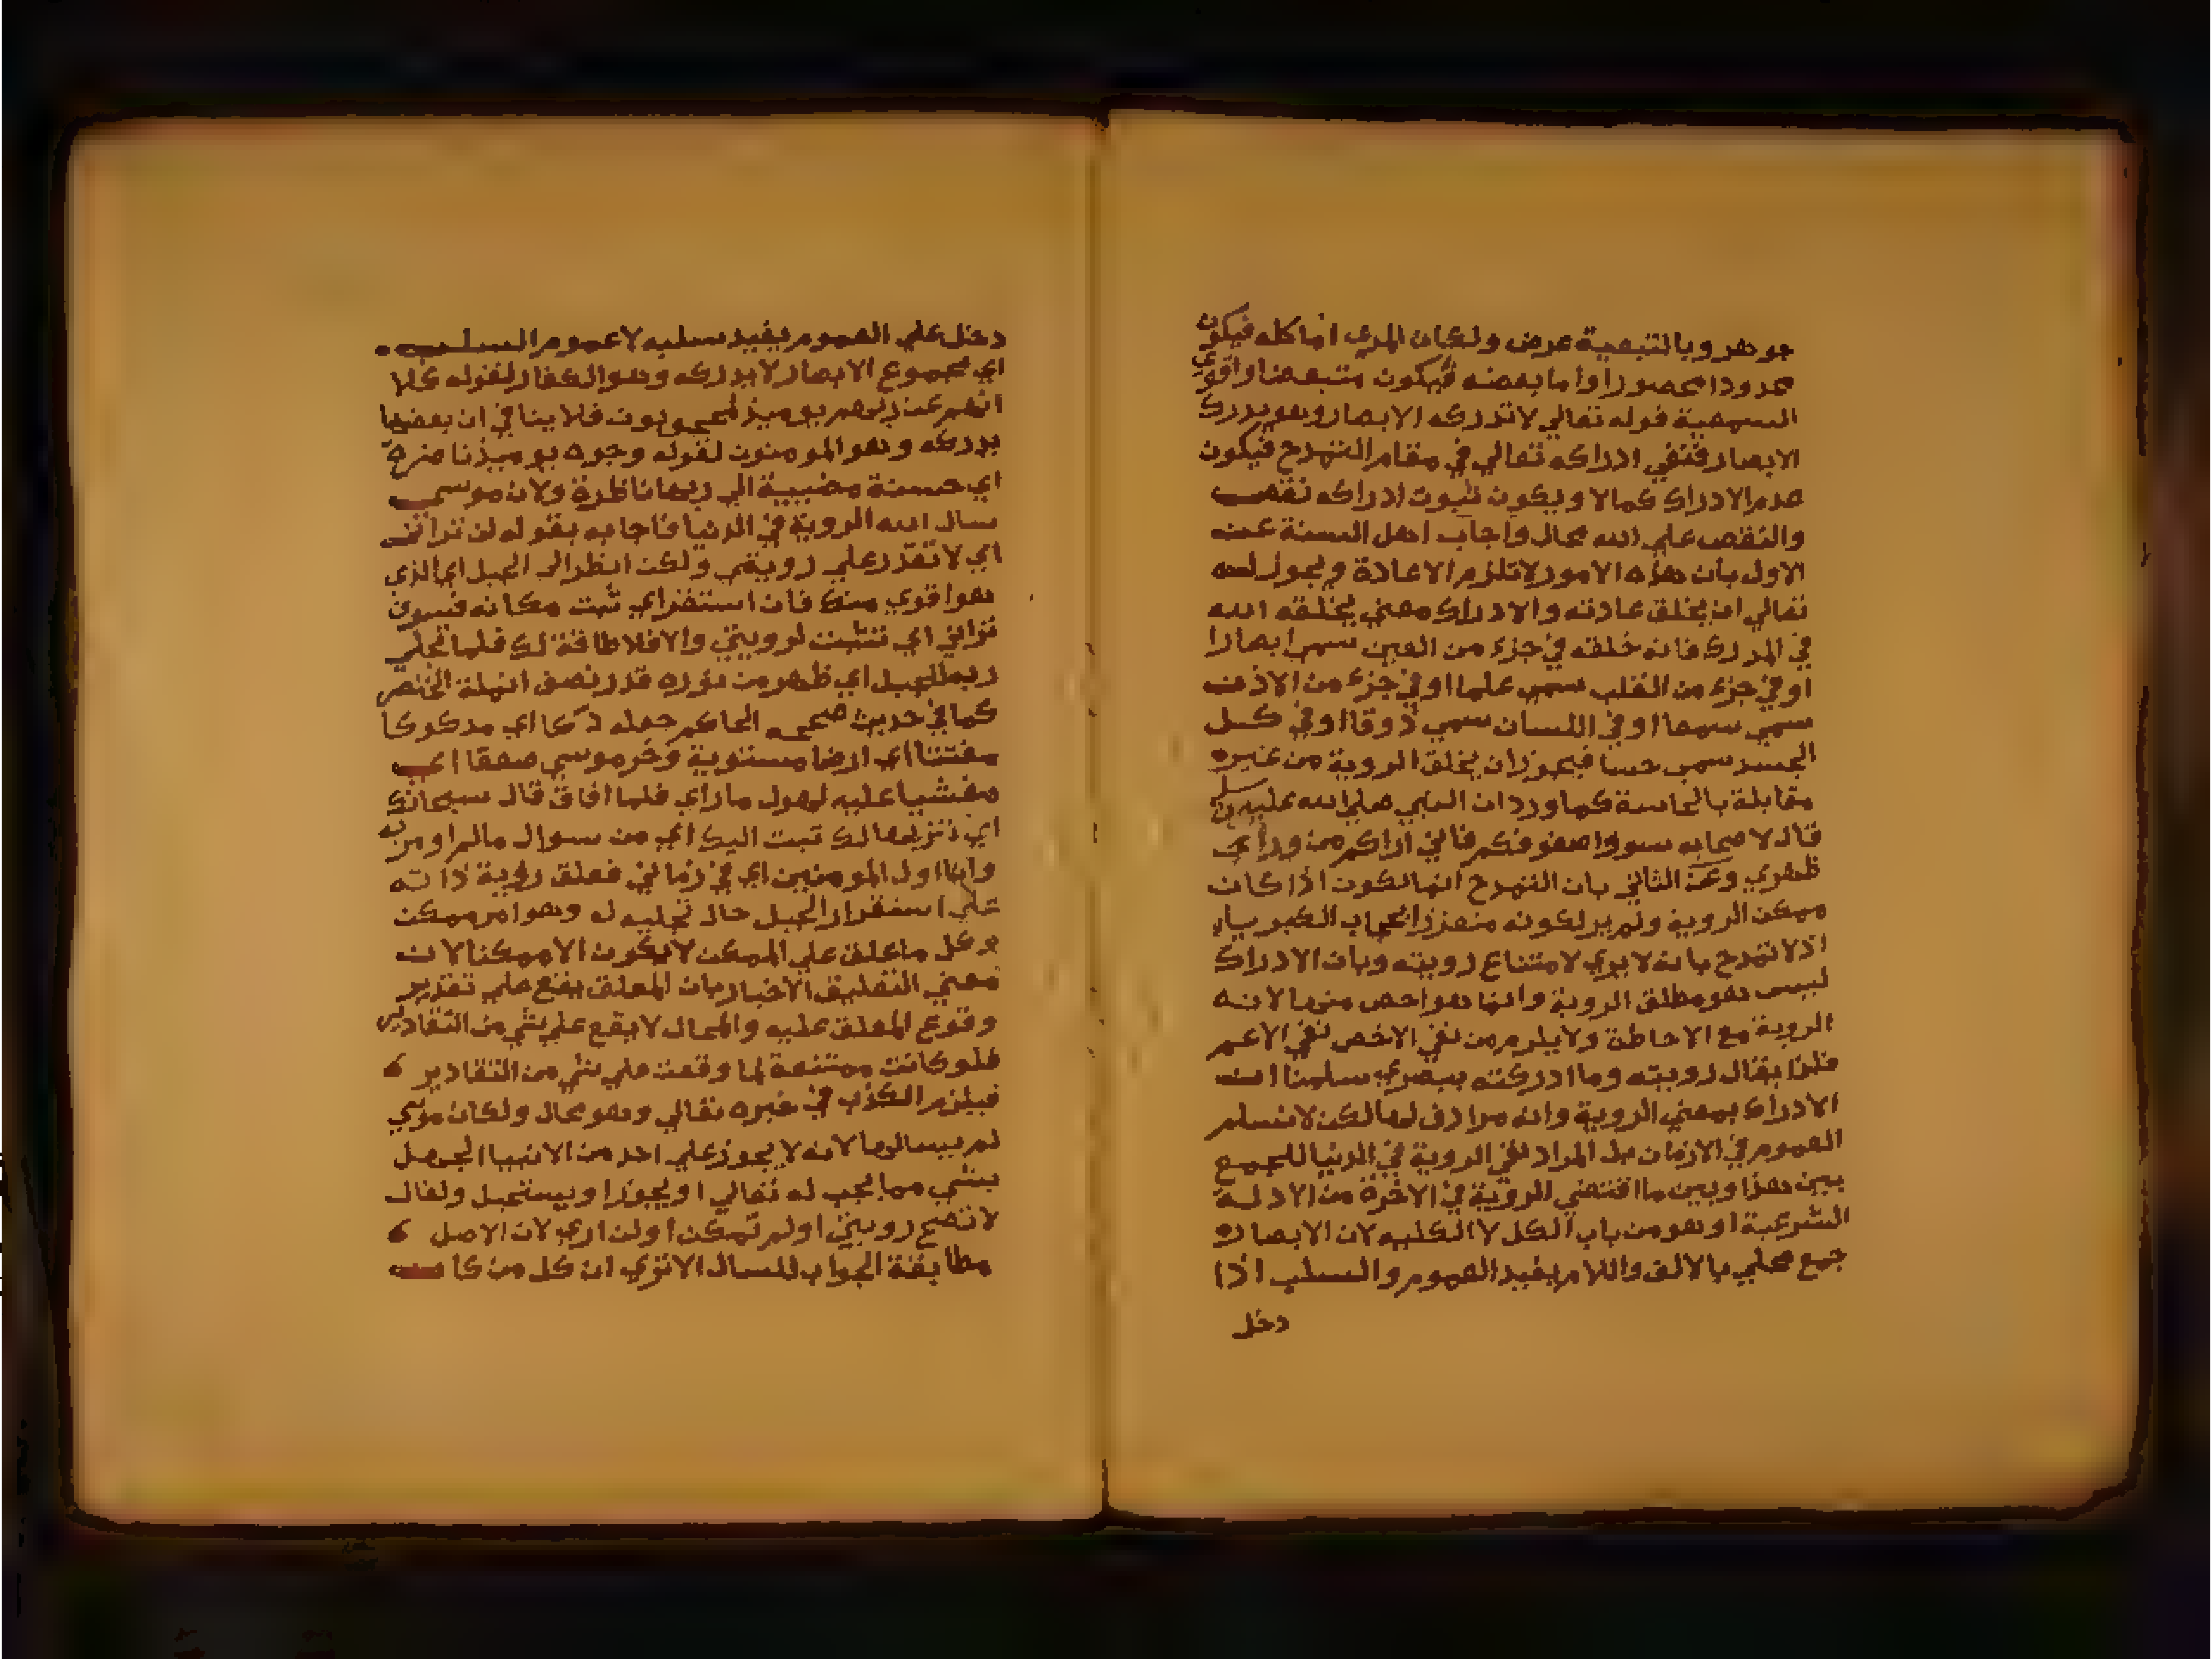 جوهر وبالتبعية عرض ولكان المري اما كله فيكون
محدودا محصورا واما بعضه فيكون متبعضا واقوي
السمعية قوله تعالي لا تدركه الابصار وهو يدرك
الابصار فنفي ادراكه تعالي في مقام التمدح فيكون
عدم الادراك كمالا ويكون ثبوت ادراكه نقص
والنقص علي الله محال واجاب اهل السنة عن
الاول بان هذه الامور لا تلزم الاعادة ويجوز له
تعالي ان يخلق عادته والادراك معني يخلقه الله
في المدرك فانه خلقه في جزء من العين سمي ابصارا
او في جزء من القلب سمي علما او في جزء من الاذن
سمي سمعا او في اللسان سمي ذوقا او في كل
الجسد سمي حسا فيجوز ان يخلق الروية من غير
مقابلة بالحاسة كما ورد ان النبي صلي الله عليه وسلم
قال لاصحابه سووا صفوفكم فاني اراكم من وراي
ظهري وعن الثاني بان التمدح انما يكون اذا كان
ممكن الروية ولم ير لكونه متعززا بحجاب الكبرياء
اذ لا تمدح بانه لا يري لامتناع رويته وبان الادراك
ليس هو مطلق الروية وانما هو اخص منها لانه
الروية مع الاحاطة ولا يلزم من نفي الاخص نفي الاعم
فلذا يقال رويته وما ادركته ببصري سلمنا ان
الادراك بمعني الروية وانه مرادف لها لكن لا نسلم
العموم في الازمان بل المراد نفي الروية في الدنيا للجمع
بين هذا وبين ما اقتضي الروية في الاخرة من الادلة
الشرعية او هو من باب الكل لا الكلية لان الابصار
جمع محلي بالالف واللام يفيد العموم والسلب اذا
دخل
دخل علي العموم يفيد سلبه لا عموم السلب
اي مجموع الابصار لا يدركه وهو الكفار لقوله كلا
انهم عن ربهم يوميذ لمحجوبون فلا ينافي ان بعضها
يدركه وهو المومنون لقوله وجوه يوميذ ناضرة
اي حسنة مضيية الي ربها ناظرة ولان موسي
سال الله الروية في الدنيا فاجابه بقوله لن تراني
اي لا تقدر علي رويتي ولكن انظر الي الجبل اي الذي
هو اقوي منك فان استقر اي ثبت مكانه فسوف
تراني اي تتثبت لرويتي والا فلا طاقة لك فلما تجلي
ربه للجبل اي ظهر من نوره قدر نصف انملة الخنصر
كما في حديث صححه الحاكم جعله دكا اي مدكوكا
مفتتا اي ارضا مستوية وخر موسي صعقا اي
مغشيا عليه لهول ما راي فلما افاق قال سبحانك
اي تنزيها لك تبت اليك اي من سوال ما لم اومر به
وانا اول المومنين اي في زماني فعلق روية ذاته
علي استقرار الجبل حال تجليه له وهو امر ممكن
وكل ما علق علي الممكن لا يكون الا ممكنا لان
معني التعليق الاخبار بان المعلق يقع علي تقدير
وقوع المعلق عليه والمحال لا يقع علي شي من التقادير
فلو كانت ممتنعة لما وقعت علي شي من التقادير
فيلزم الكذب في خبره تعالي وهو محال ولكان موسي
لم يسالها لانه لا يجوز علي احد من الانبيا الجهل
بشي مما يجب له تعالي او يجوز او يستحيل ولقال
لا تصح رويتي او لم تمكن او لن اري لان الاصل
مطابقة الجواب للسال الا تري ان كل من كان